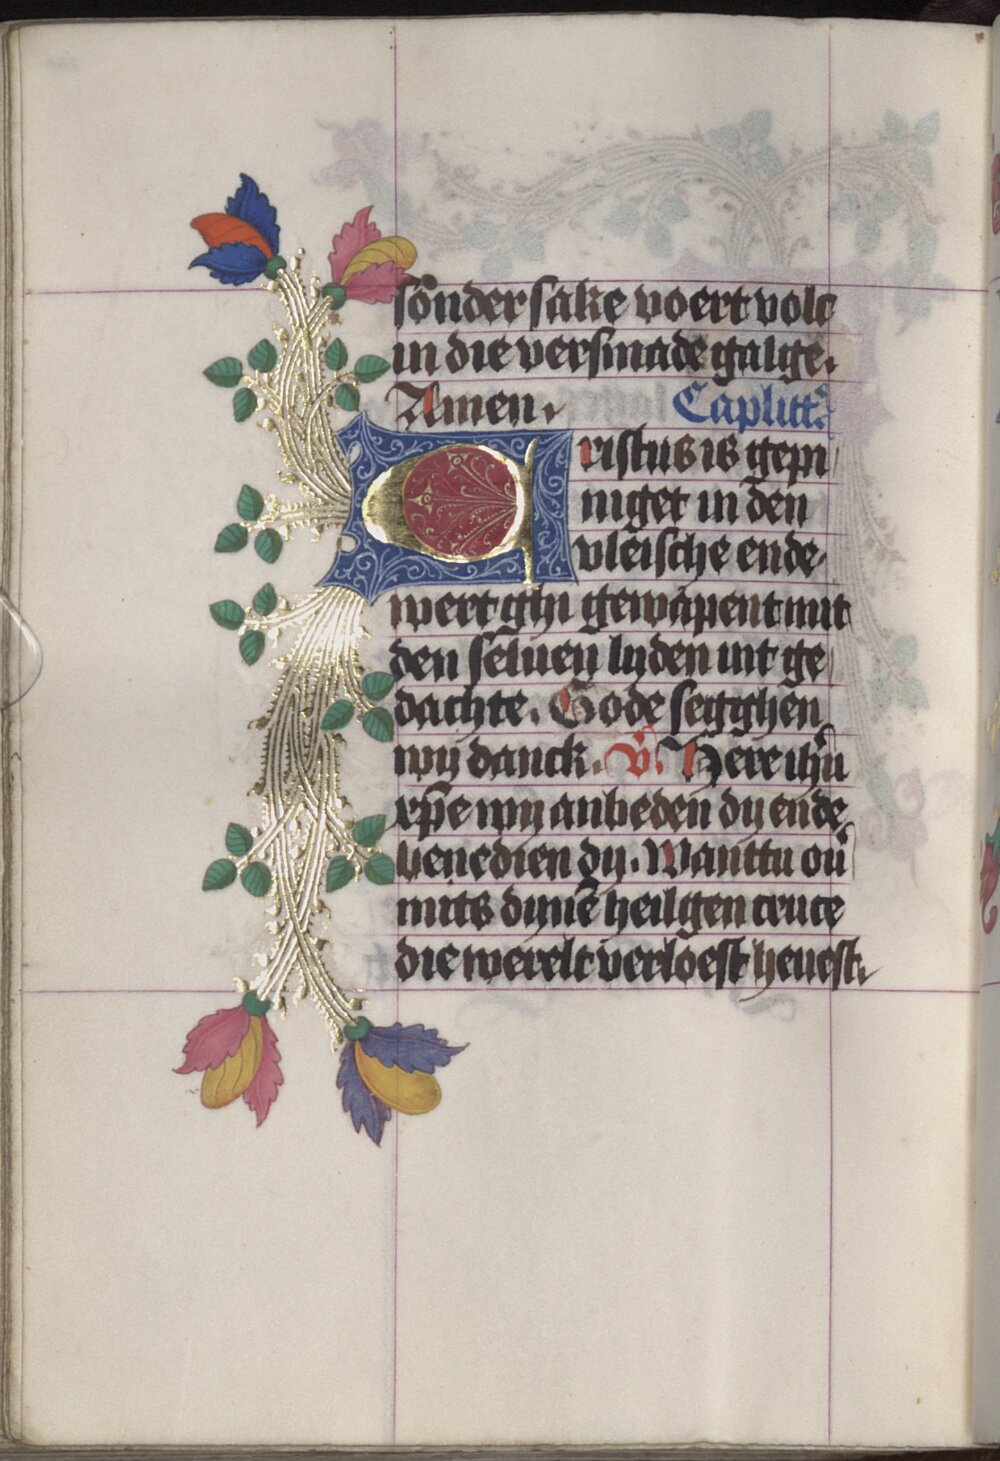 sonder sake voert volc
in die versmade galge.
Amen. Caplitt
Cristus is gepi
niget in den
vleische ende
wert ghi gewapent mit
den seluen lyden int ge
dachte. Gode segghen
wy danck. V. Here ihu
xpe wy anbeden dy ende
benedien dy. Wanttu ou
mits dyne heiligen cruce
die werelt verloest heuest.